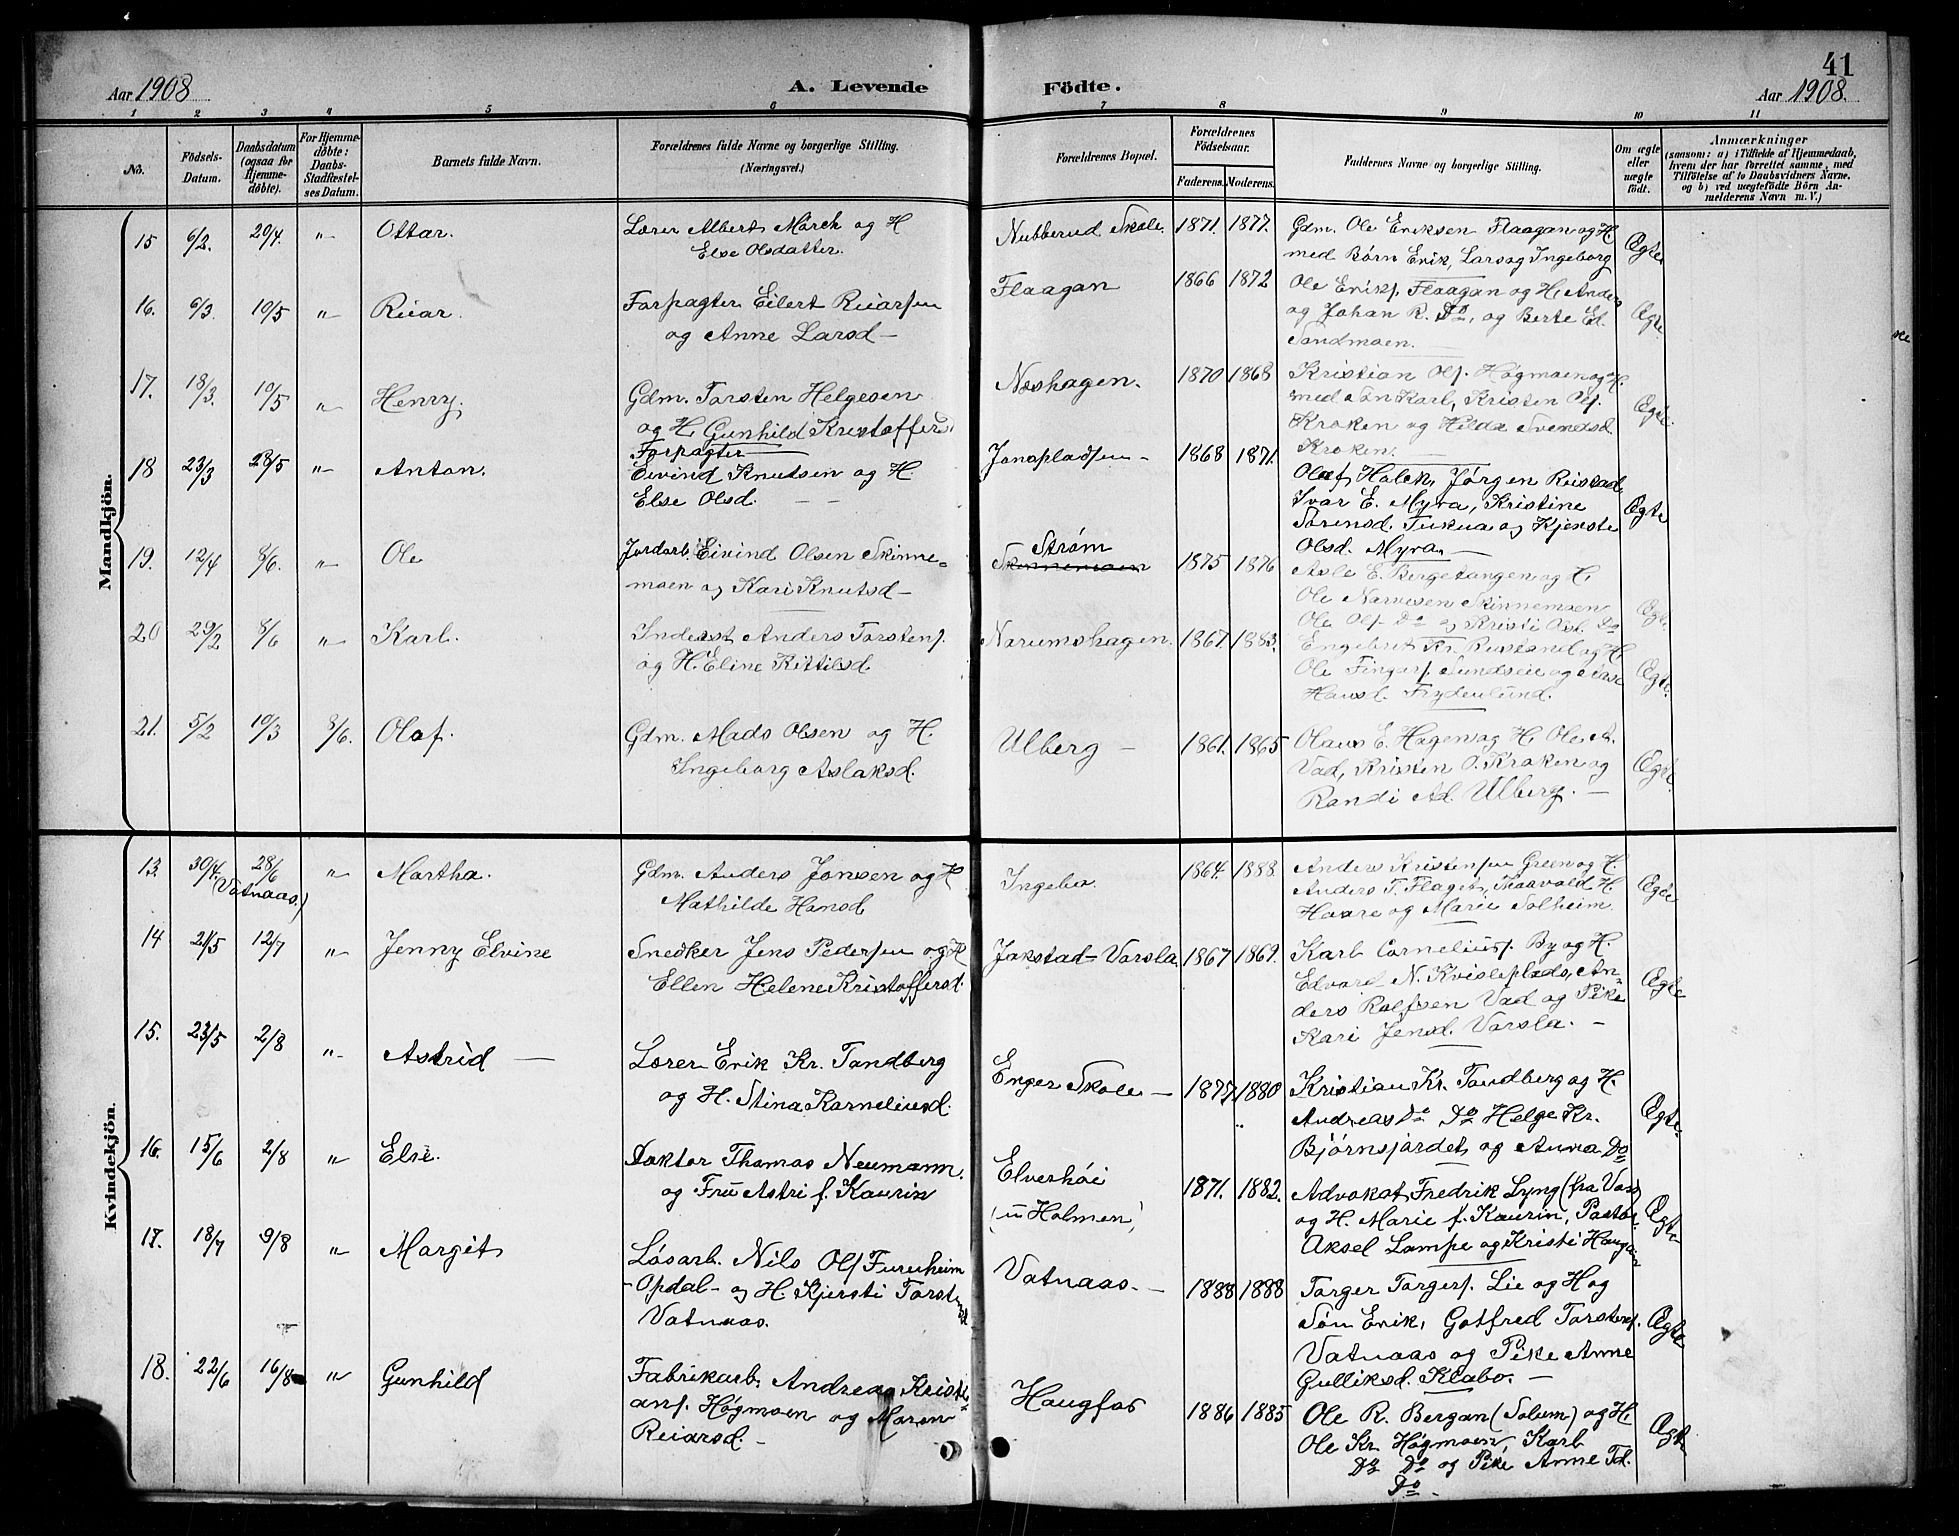 41
Aar 1908
A. Levende Födte.
Aar 1908.
1 2 3 4 5 6 7 8 9 10 11
No.
Födsels-Datum.
Daabsdatum (ogsaa for Hjemme-döbte).
For Hjemme-döbte: Daabs-Stadfæstel-ses Datum.
Barnets fulde Navn.
Forældrenes fulde Navne og borgerlige Stilling.
(Næringsvei.)
Forældrenes Bopæl.
Forældrenes Födselsaar.
Faderens. Moderens.
Faddernes Navne og borgerlige Stilling.
Om ægte eller uægte födt.
Anmærkninger
(saasom: a) i Tilfælde af Hjemmedaab,
hvem der har forrettet samme, med
Tilföielse af to Daabsvidners Navne,
og b) ved uægtefödte Börn An-
melderens Navn m. V.)
Mandkjön.
15 6/2. 20/4. " Ottar.
Lærer Albert Mørch og H
Else Olsdatter.
Nubberud Skole 1871. 1877.
Gdm. Ole Eriksen Flaagan og H
med Børn Erik, Lars og Ingeborg
Ægte
16. 6/3 10/5 " Reiar.
Forpagter Eilert Reiarsen
og Anne Larsd
Flaagan 1866 1872
Ole Eriks. Flaagan og H. Anders
og Johan R. Do, og Berte El.
Sandmoen.
Ægte
17. 18/3. 10/5 " Henry.
Gdm. Torsten Helgesen
og H. Gunhild Kristoffers
Næshagen. 1870 1868
Kristian Ols. Høgmoen og H.
med Søn Karl, Kristen Ols.
Kroken og Hilda Svendsd.
Kroken.
Ægte.
18 23/3 28/5 " Anton.
Forpagter
Eivind Knutsen og H
Else Olsd.
Jonspladsen 1868 1871.
Olaf Halck, Jørgen Reistad,
Ivar E. Myra, Kristine
Sørensd. Tukua og Kjersti
Olsd. Myra
Ægte
19. 12/4 8/6. " Ole
Jordarb. Eivind Olsen Skinne=
moen og Kari Knutsd
Strøm
Skinnemoen 1875 1876
Asle E. Bergetangen og H.
Ole Narvesen Skinnemoen
Ole Ols. Do og Kristi Ols. Do
Ægte.
20 29/2 8/6 " Karl.
Inderst Anders Torstens.
og H. Eline Kittilsd
Norumshagen 1867. 1883.
Engebret Kr. Rustand og H.
Ole Fingars. Sundseie og
Hansd. Frydenlund.
Ægte.
21. 5/2 10/3 8/6. Olaf.
Gdm. Mads Olsen og H.
Ingeborg Aslaksd.
Ulberg 1861. 1865
Olaus E. Hagen og H. Ole A.
Vad, Kristen O. Kroken og
Randi Ad. Ulberg.
Ægte
Kvindekjön.
13. 30/4. 28/6 " Martha.
(Vatnaas.)
Gdm. Anders Jonsen og H
Mathilde Hansd
Ingebo. 1864. 1888
Anders Kristensen Green og H
Anders T. Flagen, Thorvald H.
Haare og Marie Solheim
Ægte
14 21/5 12/7 " Jenny Elvine
Snedker Jens Pedersen og H
Ellen Helene Kristoffersd.
Jokstad-Varsla 1867 1869.
Karl Cornelius. By og H.
Edvard N. Kvisleplads, An=
ders Rolfsen Vad og Pike
Kari Jensd. Varsla.
Ægte
15. 23/5 2/8 " Astrid
Lærer Erik Kr. Tandberg
og H. Stina Korneliusd.
Enger Skole 1875 1880
Kristian Kr. Tandberg og H.
Andreas Do Do Helge Kr.
Bjørnsjordet, og Anna Do
Ægte.
16. 15/6 2/8 " Else.
Doktor Thomas Neumann
og Fru Astri f. Kaurin
Elverhøi
(u Holmen) 1871. 1882.
Advokat Fredrik Lyng (fra Vors)
og H. Marie f. Kaurin, Pastor
Aksel Lampe og Kristi Haugen
Ægte
17. 18/7 9/8 " Margit
Løsarb. Nils Ols Furuheim
Opdal og H. Kjersti Torst
Vatnaas.
Vatnaas. 1888 1888
Torger Torgers. Lie og H og
Søn Erik, Gotfred Torstens.
Vatnaas og Pike Anne
Gulliksd. Klabo.
Ægte
18. 22/6 16/8 " Gunhild
Fabrikarb. Andreas Kristi
ans. Høgmoen og Maren
Reiarsd.
Haugfos 1886 1885
Ole R. Bergan (Solum) og H.
Ole Kr. Høgmoen, Karl
Do Do og Pike Anne Td.
Do
Ægte